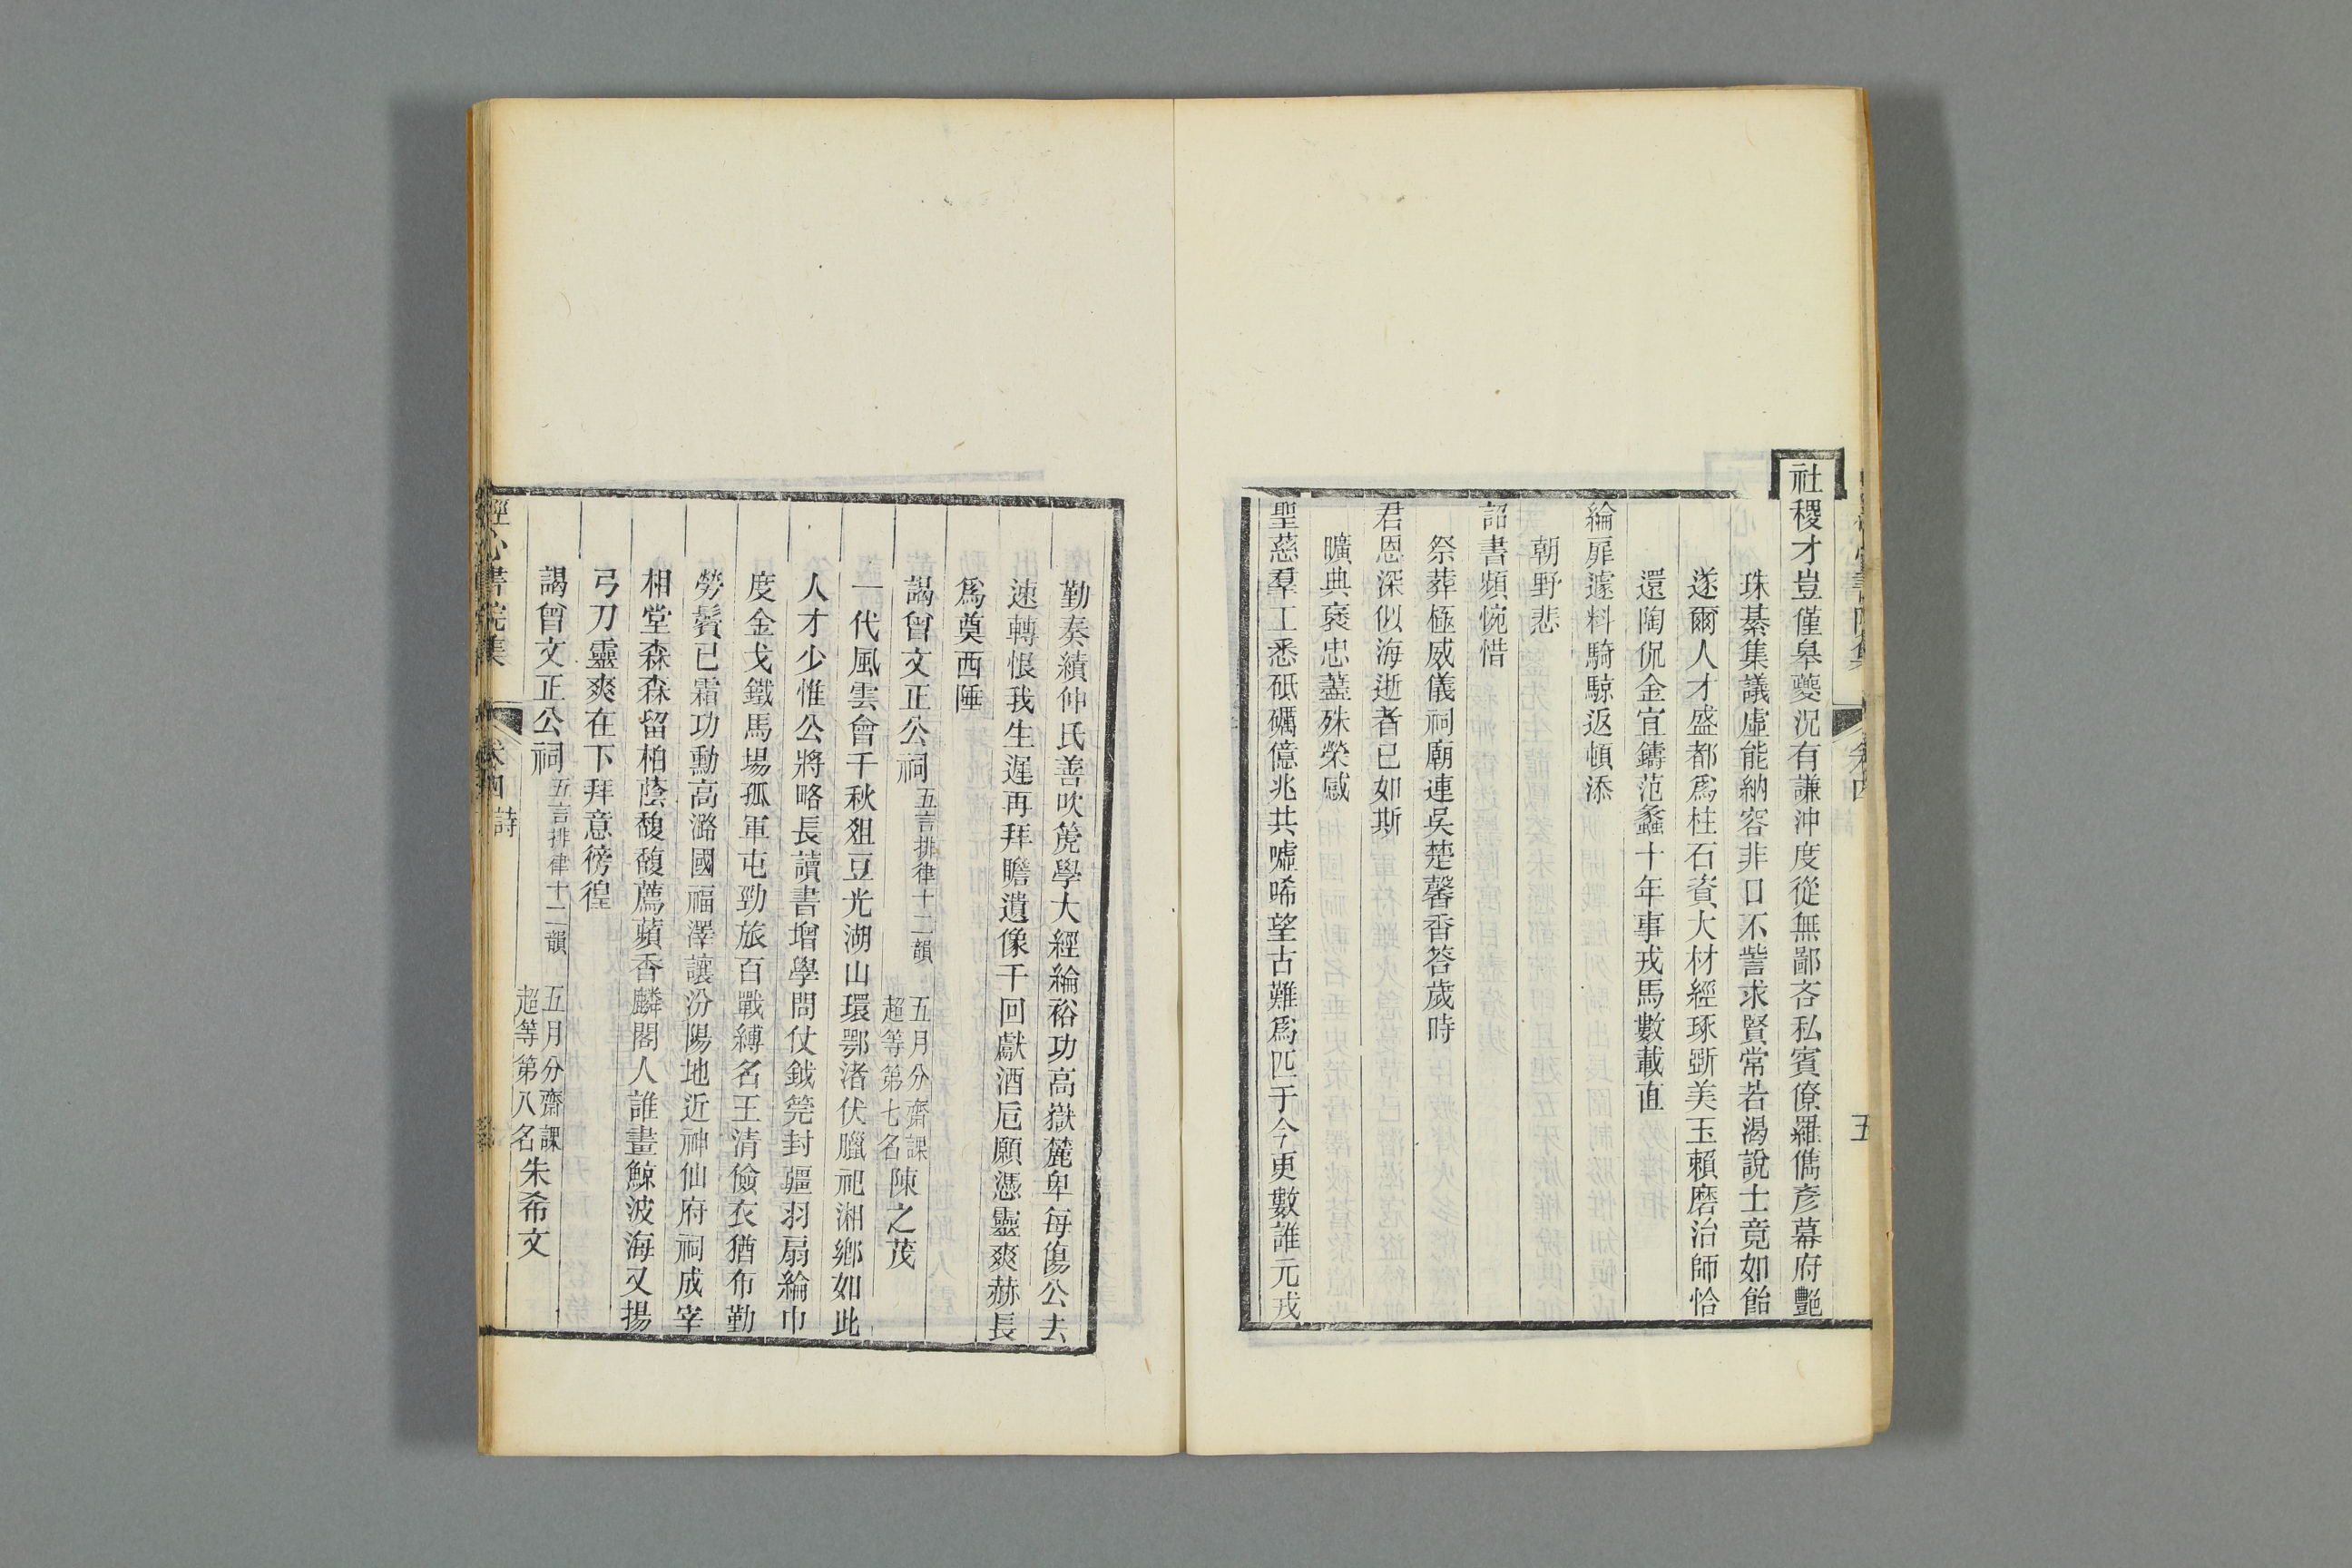 社稷才豈僅皋夔況有謙沖度從無鄙吝私賓僚羅儁彥幕府艷
珠綦集議虛能納容非口不訾求賢常若渴說士竟如飴
遂爾人才盛都爲柱石資大材經琢斲美玉賴磨治師恰
還陶侃金宜鑄范蠡十年事戎馬數載直
綸扉遽料騎鯨返頓添
朝野悲
詔書頻惋惜
祭葬極威儀祠廟連吳楚馨香答歲時
曠典褒忠藎殊榮感
君恩深似海逝者已如斯
聖慈羣工悉砥礪億兆共噓唏望古難爲匹于今更數誰元戎
勤奏績仲氏善吹篪學大經綸裕功高嶽麓卑每傷公去
速轉恨我生遲再拜瞻遺像千回獻酒卮願憑靈爽赫長
爲奠西陲
謁曾文正公祠五言排律十二韻 五月分齋課超等第七名陳之茂
一代風雲會千秋俎豆光湖山環鄂渚伏臘祀湘鄉如此
人才少惟公將略長讀書增學問仗鉞筦封疆羽扇綸巾
度金戈鐵馬場孤軍屯勁旅百戰縛名王清儉衣猶布勤
勞鬢已霜功勳高潞國福澤讓汾陽地近神仙府祠成宰
相堂森森留柏蔭馥馥薦蘋香麟閣人誰畫鯨波海又揚
弓刀靈爽在下拜意徬徨
謁曾文正公祠五言排律十二韻 五月分齋課超等第八名朱希文
經心書院集 卷四 詩